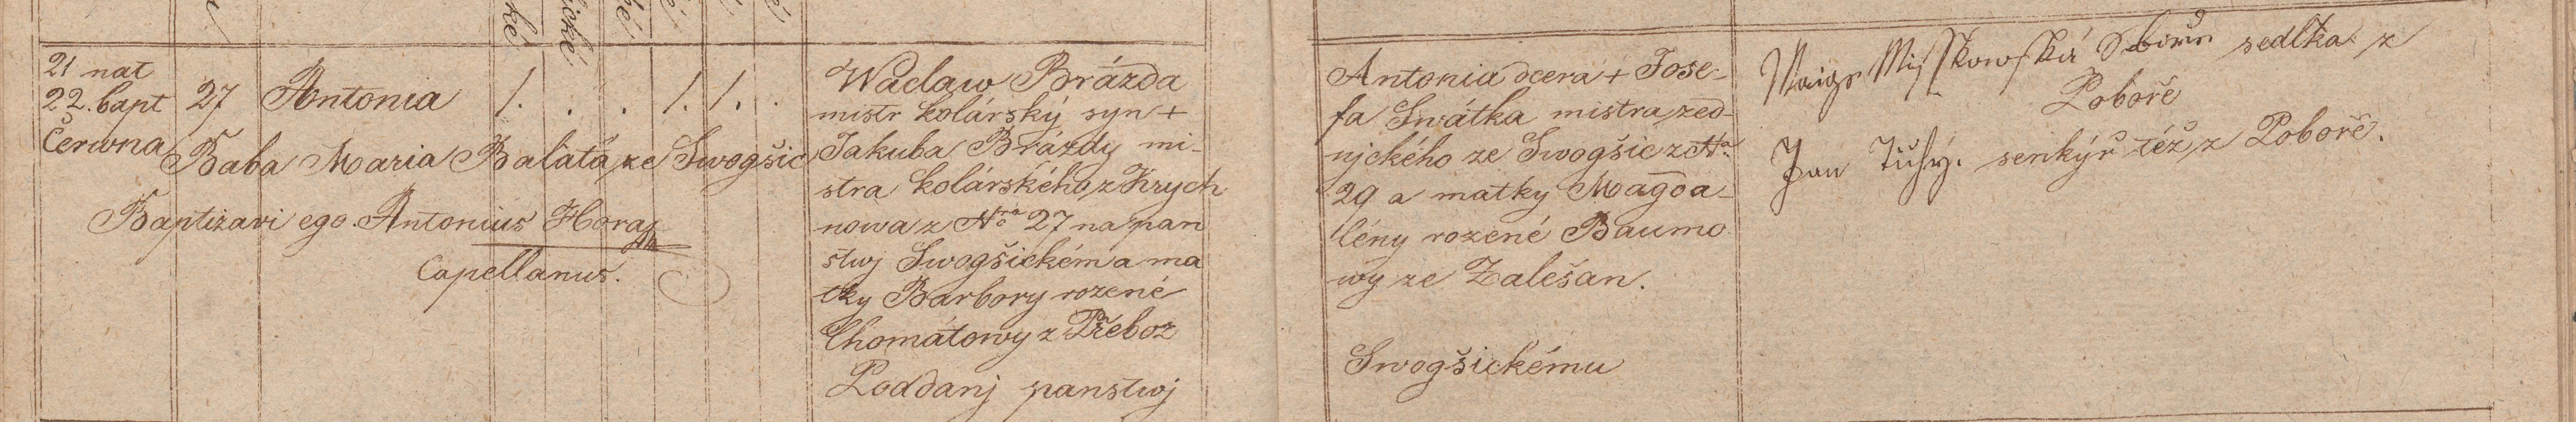 21 nat
22. bapt 27 Antonia 1. . . 1. 1. .
Čerwna
Baba Maria Balatá ze Swogšic
Baptizavi ego Antonius Horaj
Capellanus.
Waclaw Brázda
mistr kolárský syn +
Jakuba Brázdy mi-
stra kolárského z Krych
nowa z Nro 27 na pan
stwj Swogšickém a ma
tky Barbory rozené
Chomátowy z Přeboz
Poddanj panstwj
Antonia dcera + Jose-
fa Swátka mistra zed-
njckého ze Swogšic z No
29 a matky Magda-
lény rozené Baumo
wy ze Zalešan.
Swogšickému
Misskowská sedlka z
Poboře
Jan Tuhý. senkýř též z Poboře.